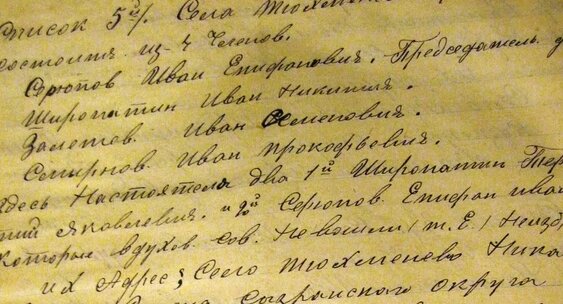 Список 5й/. Села Тюхмен
состоитъ из 4 Членов.
Серюпов Иван Епифанович. Председатель д
Широпатин Иван Никитич.
Залетев Иван Семенович.
Смирнов Иван Прокофьевич.
Здесь Настоятеля два 1й Широпатин Тер
ний Яковлевич. и 2ой Серюпов Епифан Иван
которые в духов. сов. Не вошли /т. Е./
их Адрес; Село Тюхменево Нико
Сызранского округа